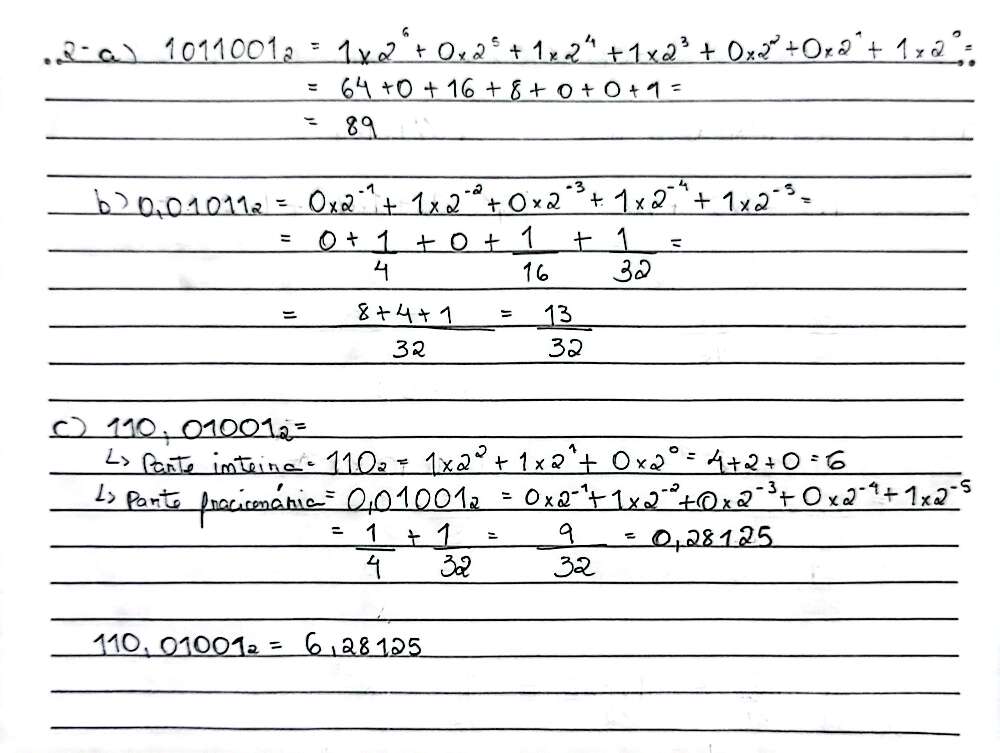 2-a) 1011001₂ = 1×2⁶ + 0×2⁵ + 1×2⁴ + 1×2³ + 0×2² + 0×2¹ + 1×2⁰ =
= 64 + 0 + 16 + 8 + 0 + 0 + 1 =
= 89
b) 0,01011₂ = 0×2⁻¹ + 1×2⁻² + 0×2⁻³ + 1×2⁻⁴ + 1×2⁻⁵ =
= 0 + 1/4 + 0 + 1/16 + 1/32 =
= 8+4+1/32 = 13/32
c) 110,01001₂ =
↳ Parte inteira = 110₂ = 1×2² + 1×2¹ + 0×2⁰ = 4+2+0 = 6
↳ Parte fracionária = 0,01001₂ = 0×2⁻¹ + 1×2⁻² + 0×2⁻³ + 0×2⁻⁴ + 1×2⁻⁵
= 1/4 + 1/32 = 9/32 = 0,28125
110,01001₂ = 6,28125